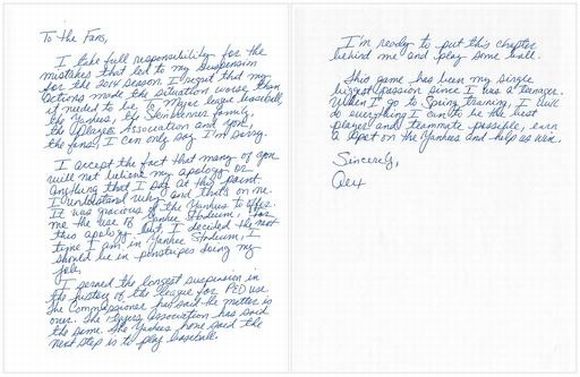 To the Fans,
I take full responsibility for the
mistakes that led to my suspension
for the 2014 season. I regret that my
actions made the situation worse than
it needed to be. To Major league baseball,
the Yankees, the Steinbrenner family,
the Players Association and you,
the fans, I can only say I'm sorry.
I accept the fact that many of you
will not believe my apology or
anything that I say at this point.
I understand why and that's on me.
It was gracious of the Yankees to offer
me the use of Yankee Stadium, for
this apology but, I decided the next
time I am in Yankee Stadium, I
should be in pinstripes doing my
job.
I served the longest suspension in
the history of the league for PED use.
The Commissioner has said the matter is
over. The Players Association has said
the same. The Yankees have said the
next step is to play baseball.
I'm ready to put this chapter
behind me and play some ball.
This game has been my single
biggest passion since I was a teenager.
When I go to Spring training, I will
do everything I can to be the best
player and teammate possible, earn
a spot on the Yankees and help us win.
Sincerely,
Alex